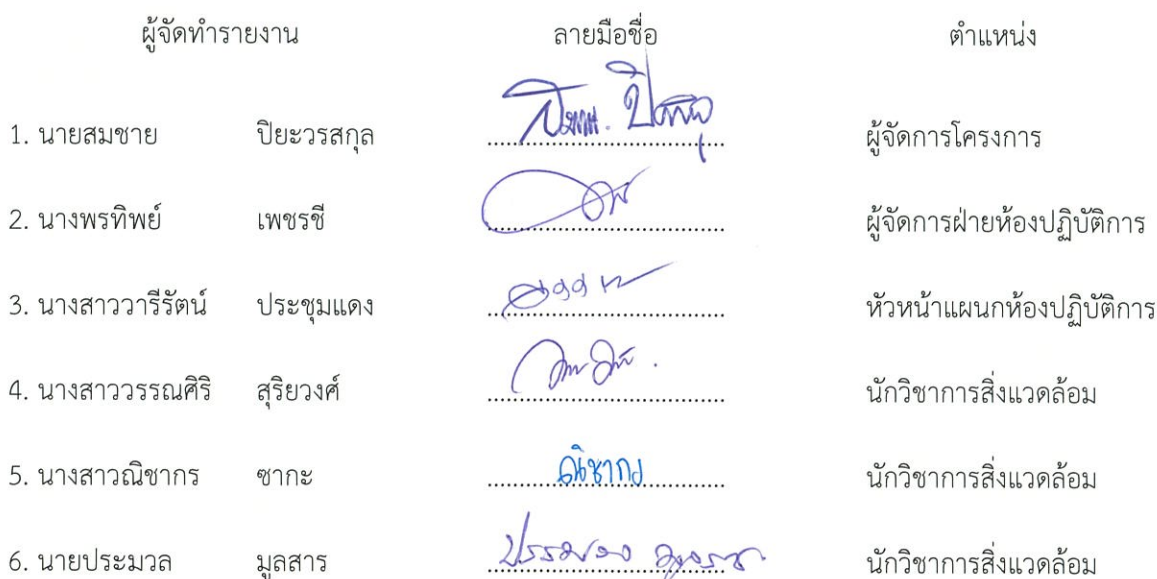 ผู้จัดทำรายงาน ลายมือชื่อ ตำแหน่ง
1. นายสมชาย ปิยะวรสกุล ผู้จัดการโครงการ
2. นางพรทิพย์ เพชรชี ผู้จัดการฝ่ายห้องปฏิบัติการ
3. นางสาววารีรัตน์ ประชุมแดง หัวหน้าแผนกห้องปฏิบัติการ
4. นางสาววรรณศิริ สุริยวงศ์ นักวิชาการสิ่งแวดล้อม
5. นางสาวณิชากร ซากะ ณิชากร นักวิชาการสิ่งแวดล้อม
6. นายประมวล มูลสาร นักวิชาการสิ่งแวดล้อม